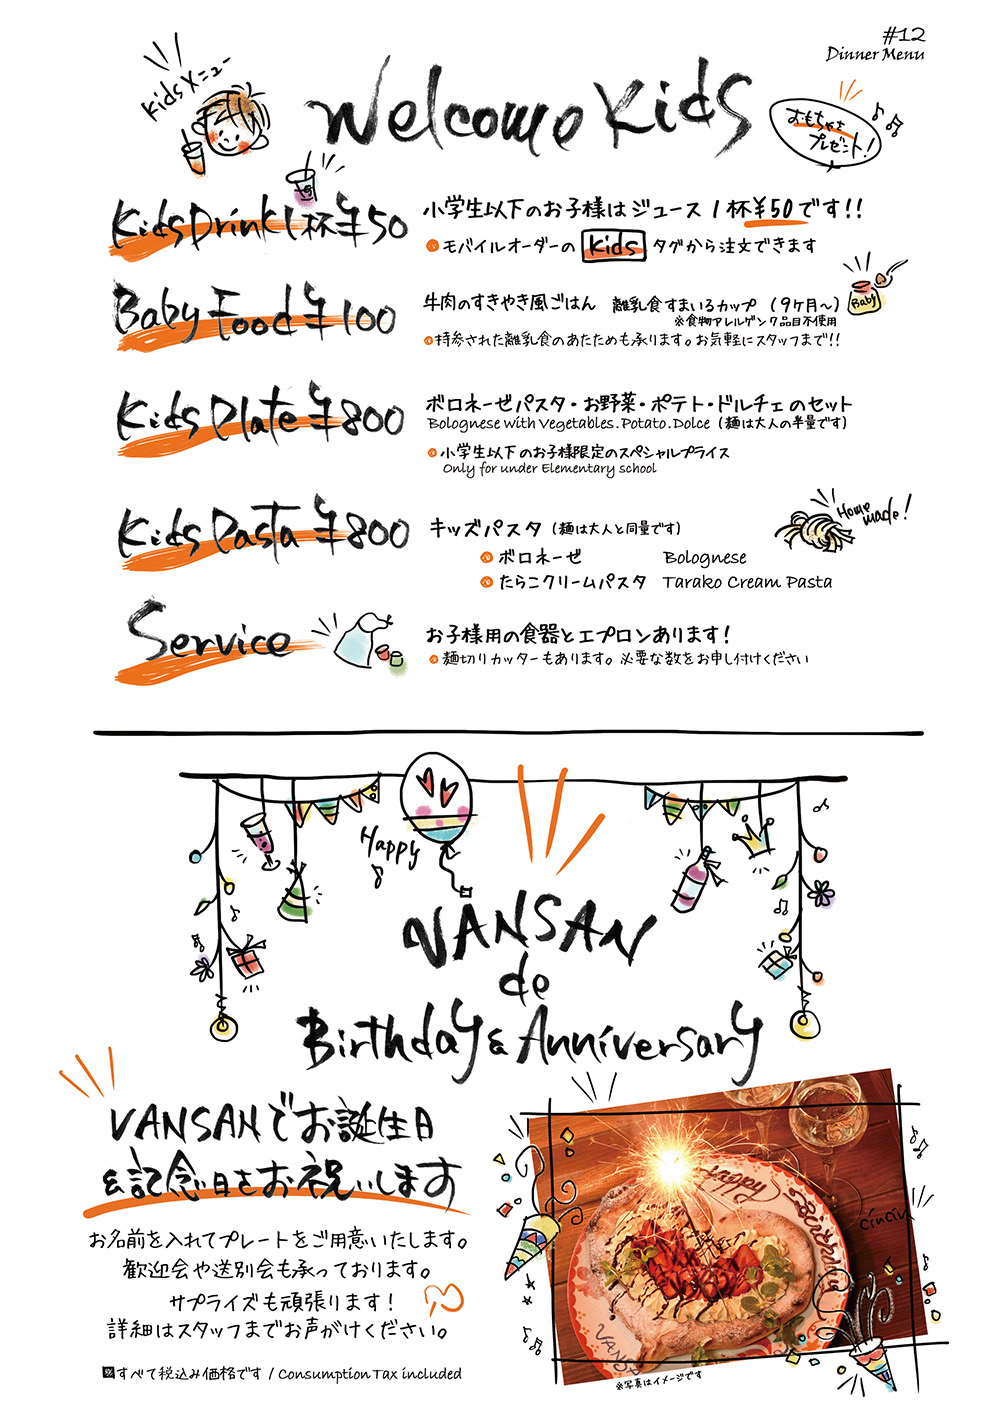 #12
Dinner Menu
Kidsメニュー
Welcome Kids
おもちゃを
プレゼント!
Kids Drink 1杯 ¥50
小学生以下のお子様はジュース1杯¥50です!!
モバイルオーダーの Kids タグから注文できます
Baby Food ¥100
牛肉のすきやき風ごはん 離乳食すまいるカップ (9ケ月〜)
Baby
※食物アレルゲン7品目不使用
持参された離乳食のあたためも承ります。お気軽にスタッフまで!!
Kids Plate ¥800
ボロネーゼパスタ・お野菜・ポテト・ドルチェのセット
Bolognese with Vegetables.Potato.Dolce (麺は大人の半量です)
小学生以下のお子様限定のスペシャルプライス
Only for under Elementary school
Kids Pasta ¥800
キッズパスタ (麺は大人と同量です)
Home made!
ボロネーゼ Bolognese
たらこクリームパスタ Tarako Cream Pasta
Service
お子様用の食器とエプロンあります!
麺切りカッターもあります。必要な数をお申し付けください
Happy
VANSAN
de
Birthday & Anniversary
VANSANでお誕生日
&記念日をお祝いします
お名前を入れてプレートをご用意いたします。
歓迎会や送別会も承っております。
サプライズも頑張ります!
詳細はスタッフまでお声がけください。
すべて税込み価格です / Consumption Tax included
Happy Birthday
VANSAN
※写真はイメージです